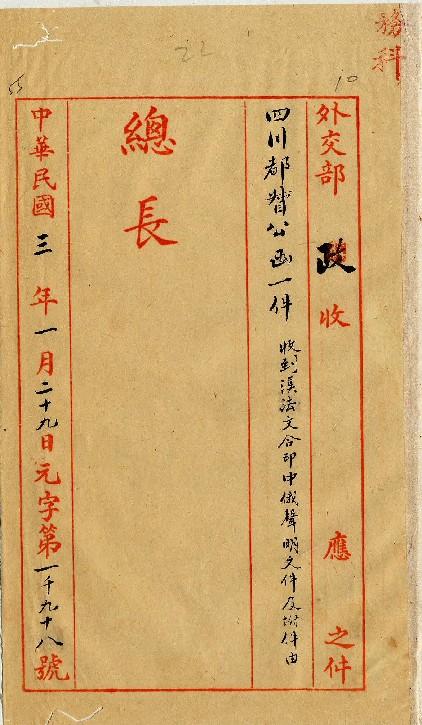 務科
22
10
15
外交部政收 應之件
四川都督公函一件 收到漢法文合印中俄聲明文件及附件由
總長
中華民國三年一月二十九日元字第一千九十八號